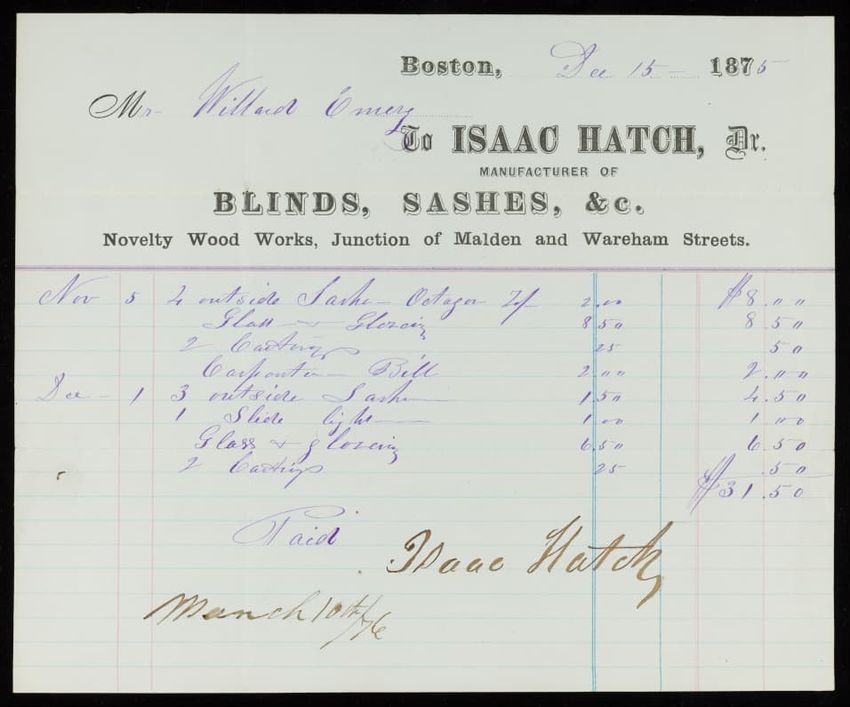 Boston, Dec 15 - 1875
Mr Willard Emery
To ISAAC HATCH, Dr.
MANUFACTURER OF
BLINDS, SASHES, &c.
Novelty Wood Works, Junction of Malden and Wareham Streets.
Nov 5 4 outside Sashe - Octagon 2.00 $8.00
Glass & Glozeing 8 50 8.50
2 Castings 25 50
Carpenter Bill 2.00 2.00
Dec - 1 3 outside Sash 1.50 4.50
1 Slide light 1.00 1.00
Glass & glozeing 6.50 6.50
2 Castings 25 .50
$31.50
Paid Isaac Hatch
March 10th/76